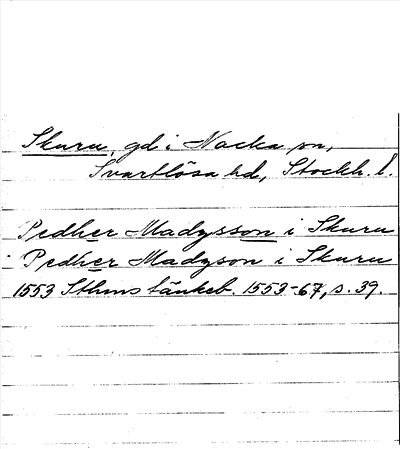 Skuru, gd i Nacka sn,
Svartlösa hd, Stockh. l.
Pedher Madysson i Skuru
Pedher Madyson i Skuru
1553 Sthms tänkeb. 1553-67, s. 39.